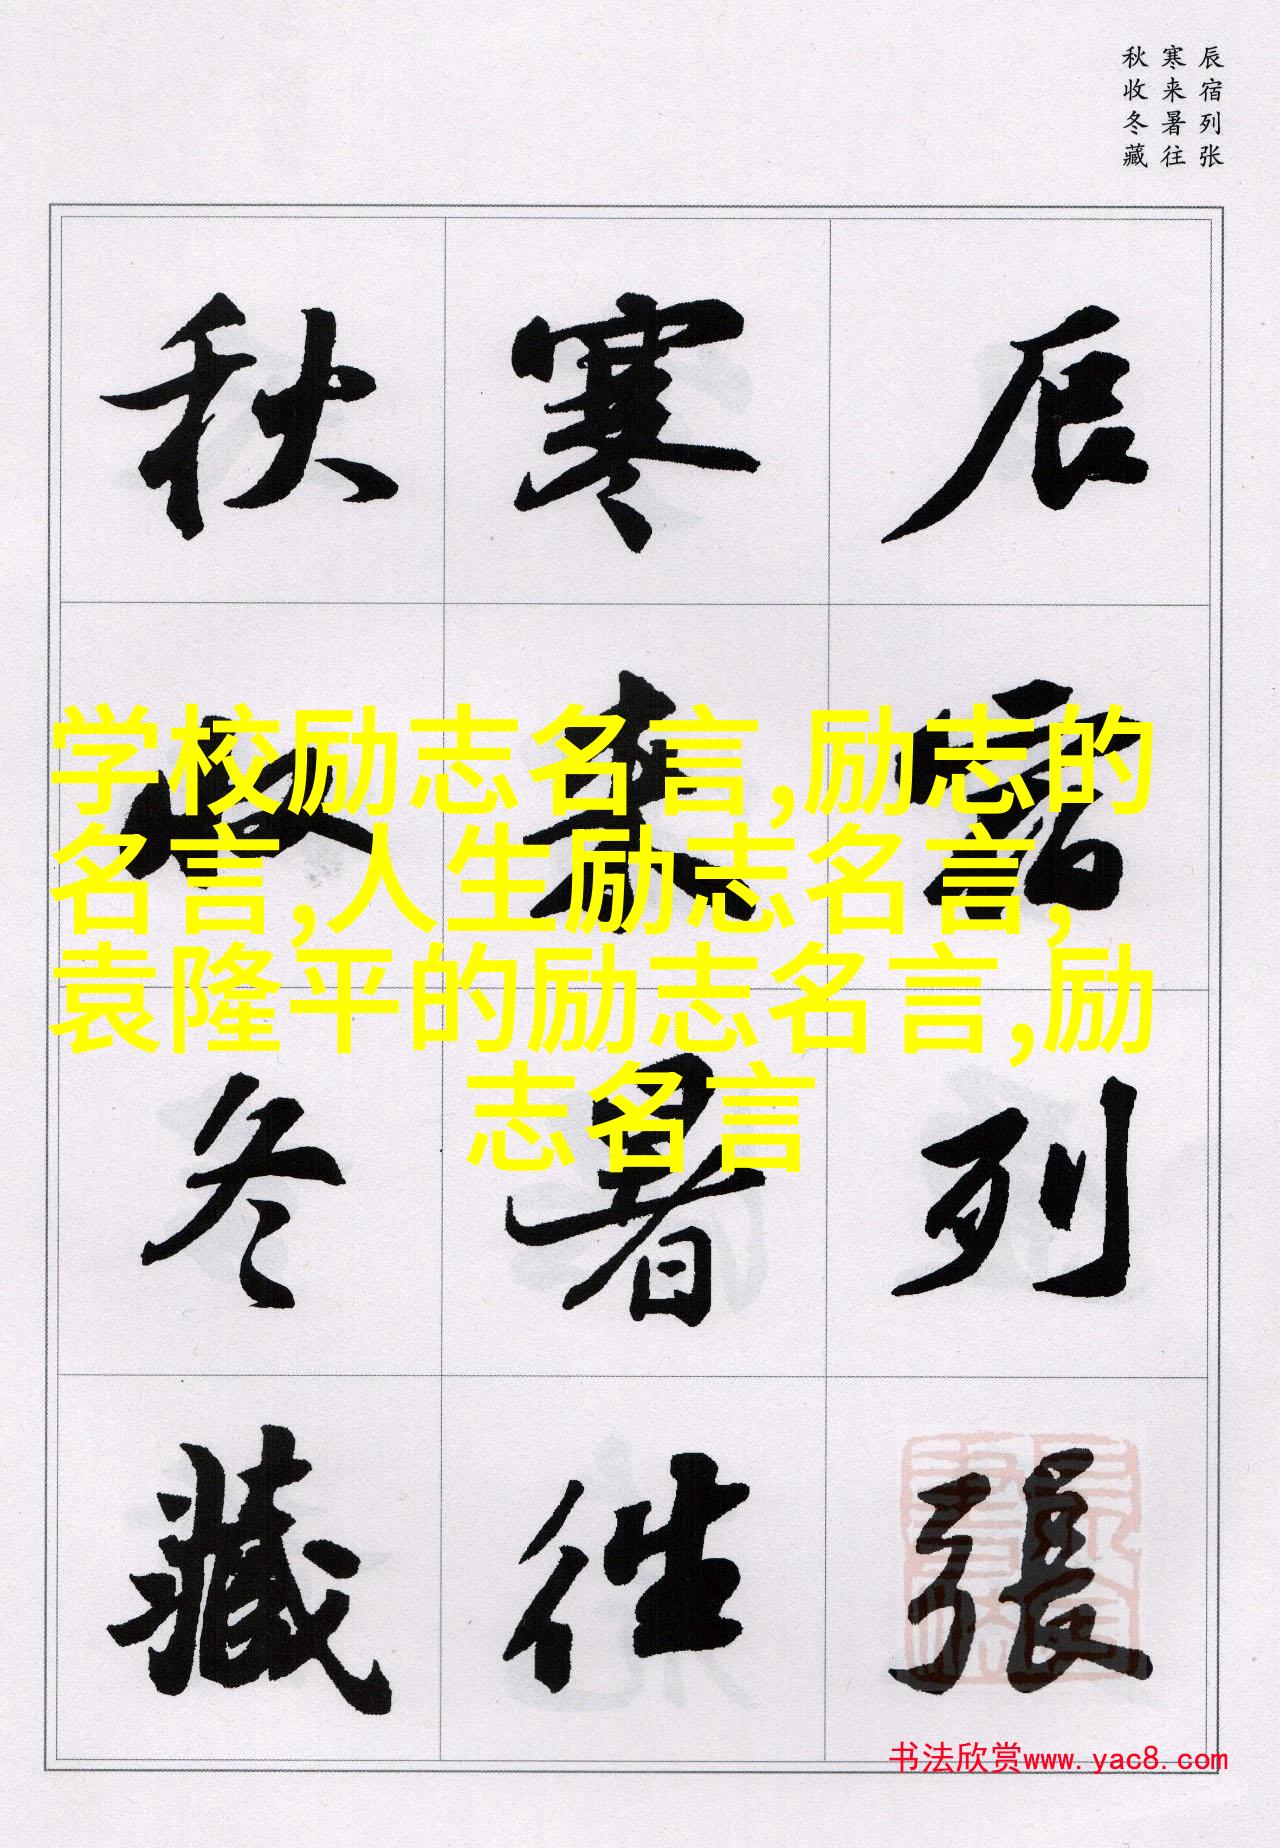 辰宿列张
寒来暑往
秋收冬藏
辰宿列張
寒来暑往
秋收冬藏
学校励志名言,励志的
名言,人生励志名言,
袁隆平的励志名言,励
志名言
书法欣赏www.yac8.com